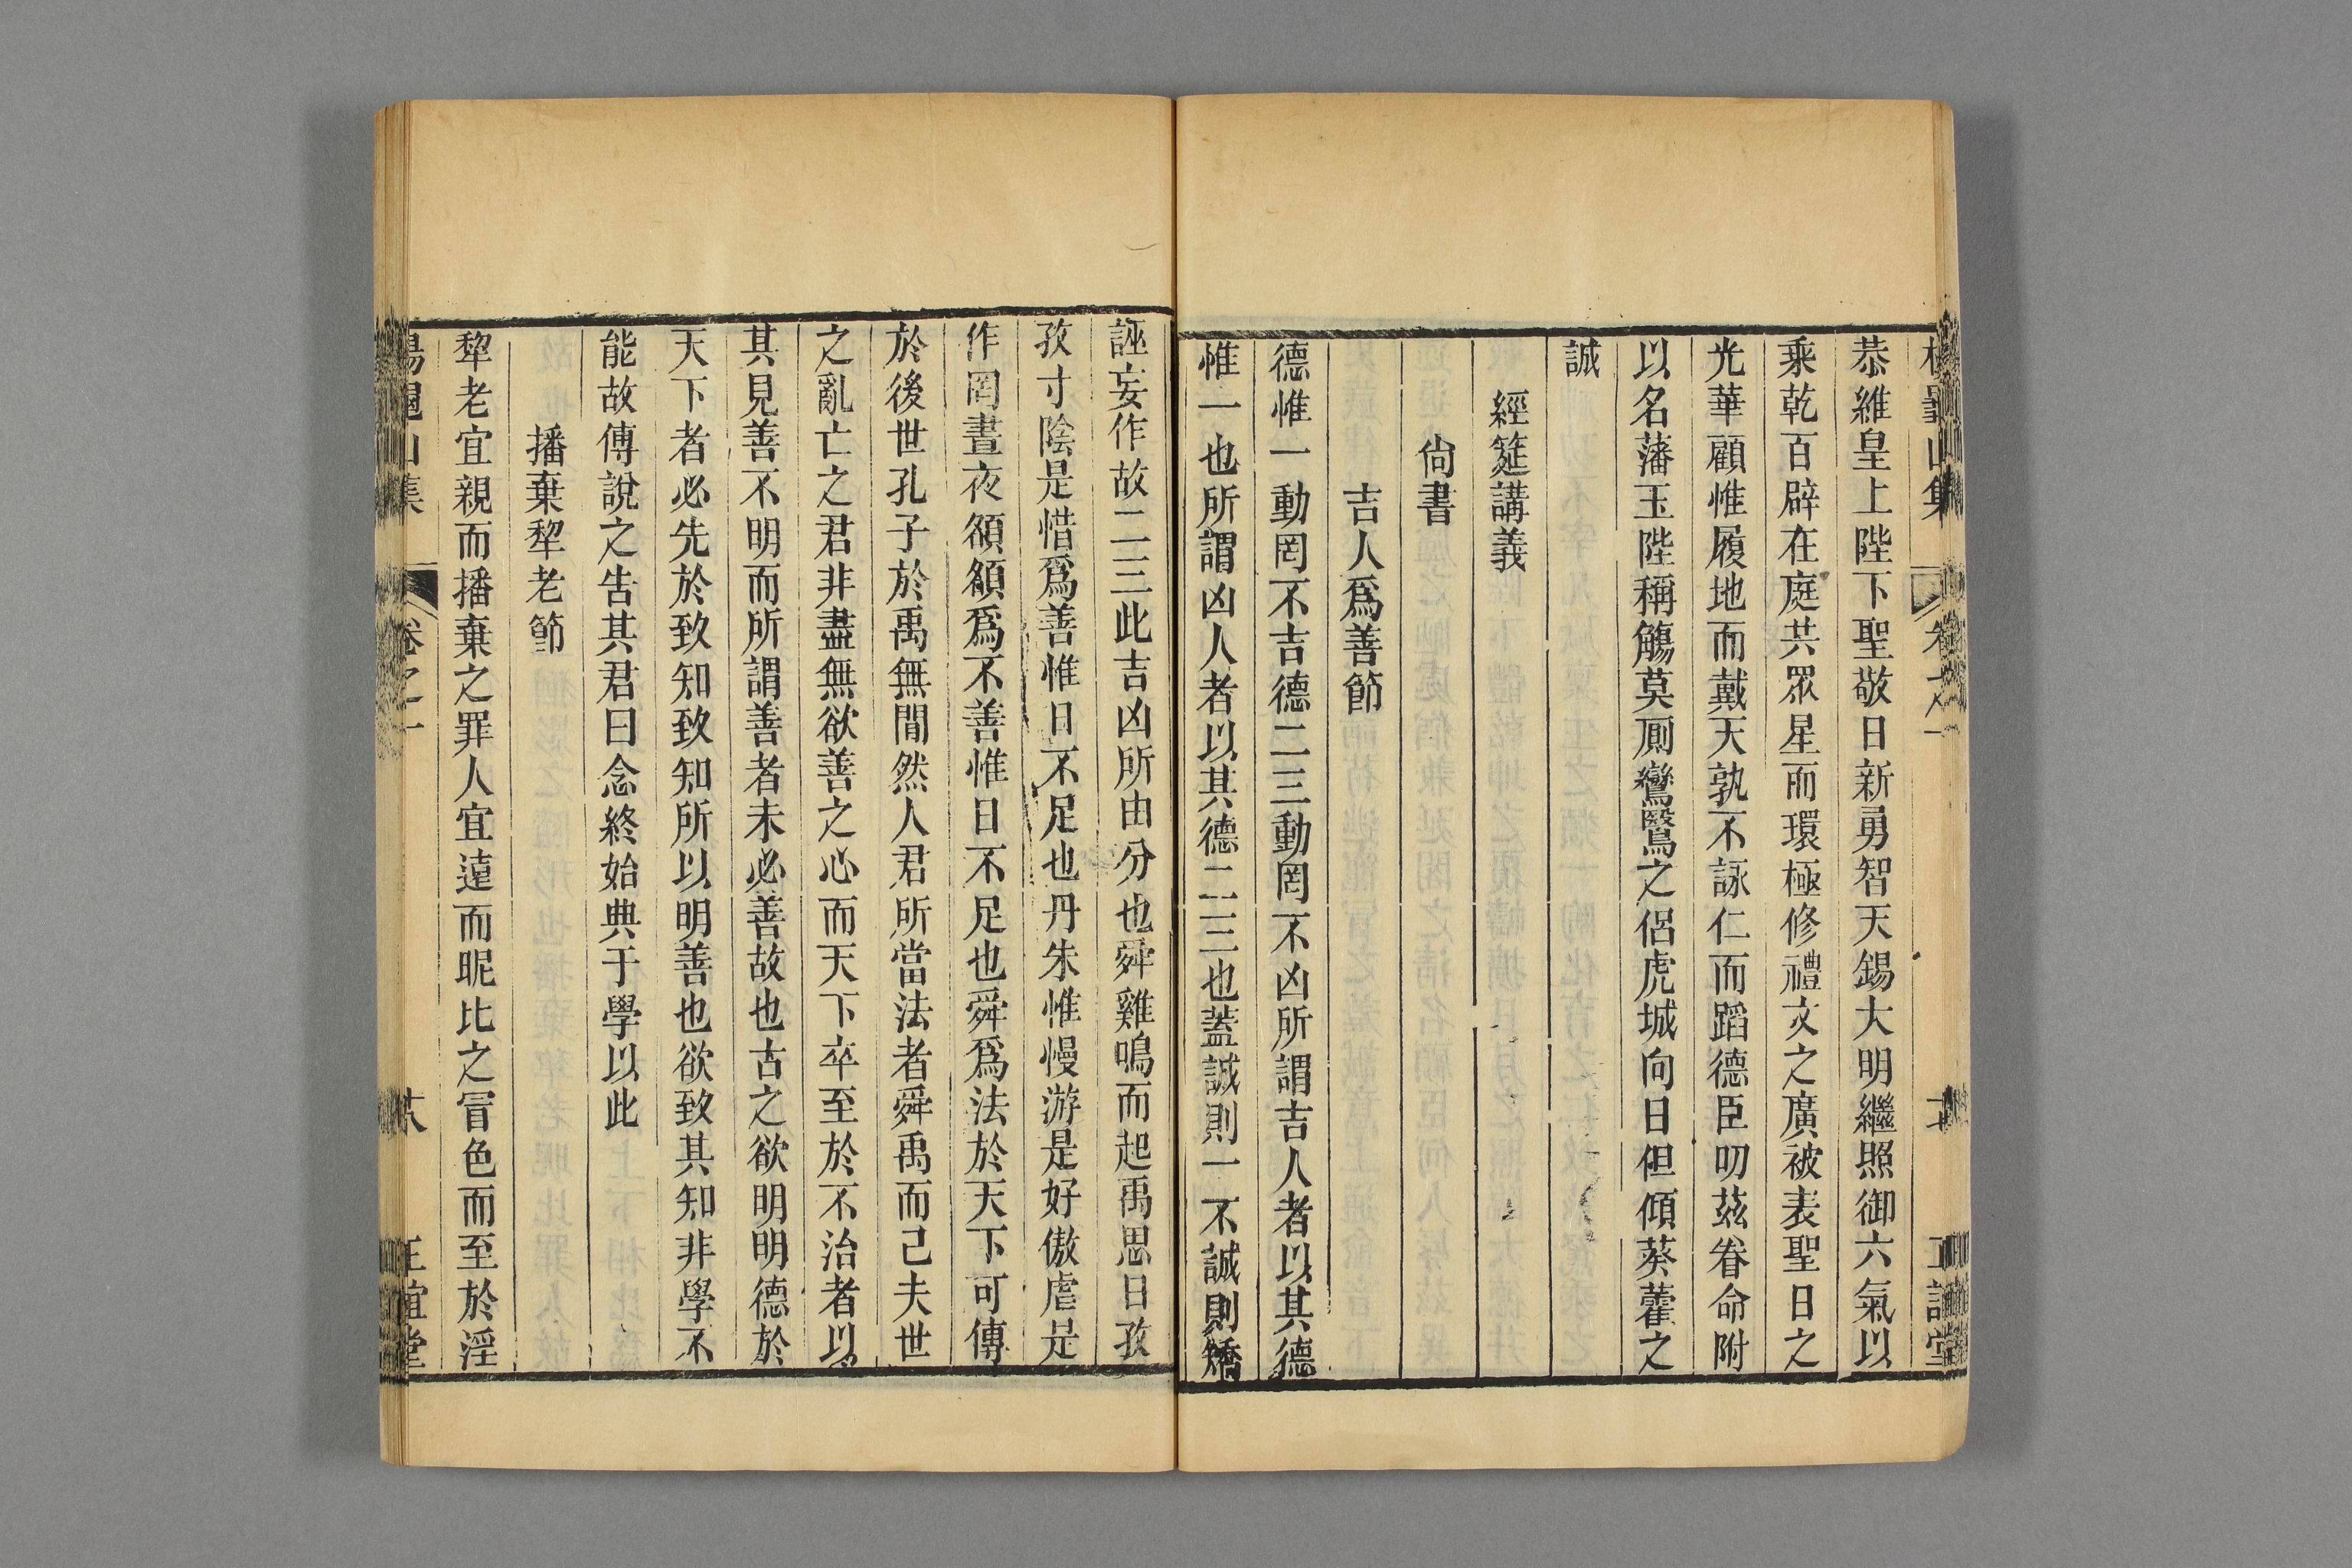 恭維皇上陛下聖敬日新勇智天錫大明繼照御六氣以
乘乾百辟在庭共眾星而環極修禮文之廣被表聖日之
光華顧惟履地而戴天孰不詠仁而蹈德臣叨茲眷命附
以名藩玉陛稱觴莫厠鴛鷖之侶虎城向日但傾葵藿之
誠
經筵講義
尙書
吉人爲善節
德惟一動罔不吉德二三動罔不凶所謂吉人者以其德
惟一也所謂凶人者以其德二三也蓋誠則一不誠則矯
誣妄作故二三此吉凶所由分也舜雞鳴而起禹思日孜
孜寸陰是惜爲善惟日不足也丹朱惟慢游是好傲虐是
作罔晝夜頟頟爲不善惟日不足也舜爲法於天下可傳
於後世孔子於禹無閒然人君所當法者舜禹而已夫世
之亂亡之君非盡無欲善之心而天下卒至於不治者以
其見善不明而所謂善者未必善故也古之欲明明德於
天下者必先於致知致知所以明善也欲致其知非學不
能故傅說之告其君曰念終始典于學以此
播棄犂老節
犂老宜親而播棄之罪人宜遠而昵比之冒色而至於淫
楊龜山集 卷之一 六 正誼堂